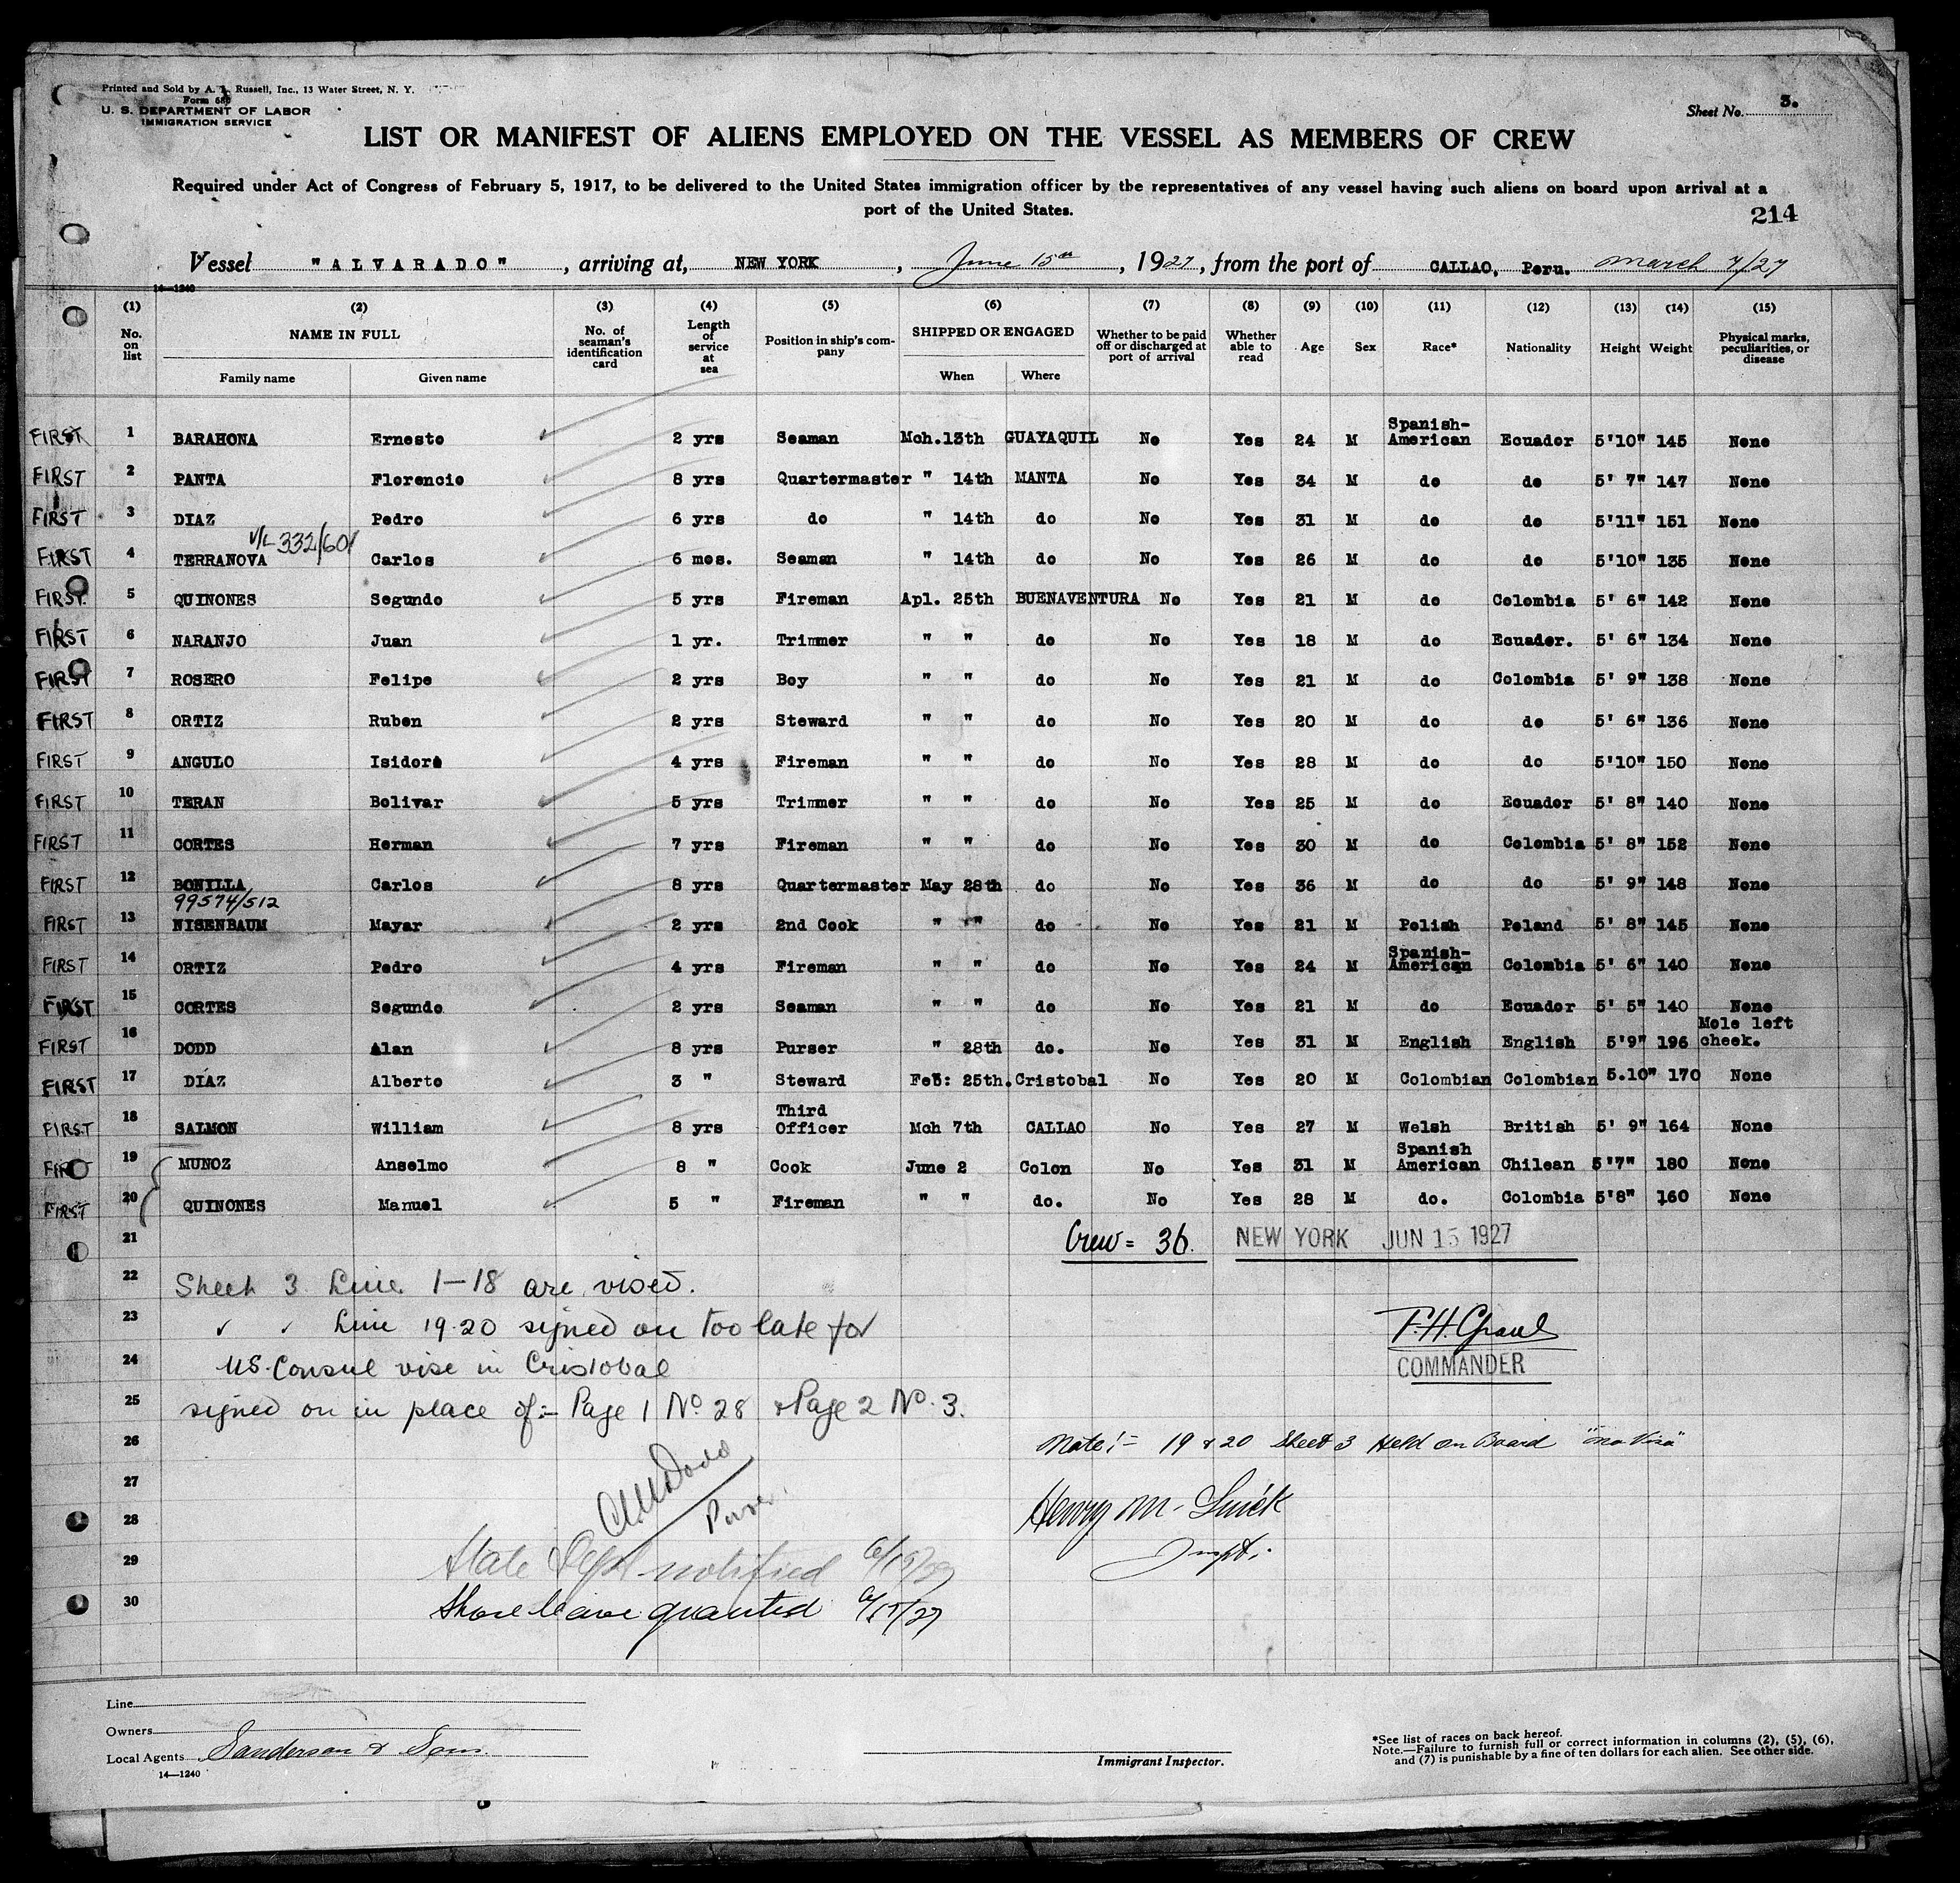 Printed and Sold by A. L. Russell, Inc., 13 Water Street, N. Y.
Form 680
U. S. DEPARTMENT OF LABOR
IMMIGRATION SERVICE
Sheet No. 3.
LIST OR MANIFEST OF ALIENS EMPLOYED ON THE VESSEL AS MEMBERS OF CREW
Required under Act of Congress of February 5, 1917, to be delivered to the United States immigration officer by the representatives of any vessel having such aliens on board upon arrival at a
port of the United States.
214
Vessel "ALVARADO", arriving at, NEW YORK, June 15th, 1927, from the port of CALLAO, Peru. March 7/27
14—1240
(1) (2) (3) (4) (5) (6) (7) (8) (9) (10) (11) (12) (13) (14) (15)
No. on list NAME IN FULL Family name Given name No. of seaman's identification card Length of service at sea Position in ship's company SHIPPED OR ENGAGED When Where Whether to be paid off or discharged at port of arrival Whether able to read Age Sex Race* Nationality Height Weight Physical marks, peculiarities, or disease
FIRST 1 BARAHONA Ernesto 2 yrs Seaman Mch. 13th GUAYAQUIL No Yes 24 M Spanish-American Ecuador 5'10" 145 None
FIRST 2 PANTA Florencio 8 yrs Quartermaster " 14th MANTA No Yes 34 M do do 5' 7" 147 None
FIRST 3 DIAZ Pedro 6 yrs do " 14th do No Yes 31 M do do 5'11" 151 None
V/L 332/601
FIRST 4 TERRANOVA Carlos 6 mos. Seaman " 14th do No Yes 26 M do do 5'10" 135 None
FIRST 5 QUINONES Segundo 5 yrs Fireman Apl. 25th BUENAVENTURA No Yes 21 M do Colombia 5' 6" 142 None
FIRST 6 NARANJO Juan 1 yr. Trimmer " " do No Yes 18 M do Ecuador. 5' 6" 134 None
FIRST 7 ROSERO Felipe 2 yrs Boy " " do No Yes 21 M do Colombia 5' 9" 138 None
FIRST 8 ORTIZ Ruben 2 yrs Steward " " do No Yes 20 M do do 5' 6" 136 None
FIRST 9 ANGULO Isidore 4 yrs Fireman " " do No Yes 28 M do do 5'10" 150 None
FIRST 10 TERAN Bolivar 5 yrs Trimmer " " do No Yes 25 M do Ecuador 5' 8" 140 None
FIRST 11 CORTES Herman 7 yrs Fireman " " do No Yes 30 M do Colombia 5' 8" 152 None
FIRST 12 BONILLA Carlos 8 yrs Quartermaster May 28th do No Yes 36 M do do 5' 9" 148 None
99574/512
FIRST 13 NISENBAUM Mayar 2 yrs 2nd Cook " " do No Yes 21 M Polish Poland 5' 8" 145 None
FIRST 14 ORTIZ Pedro 4 yrs Fireman " " do No Yes 24 M Spanish-American Colombia 5' 6" 140 None
FIRST 15 CORTES Segundo 2 yrs Seaman " " do No Yes 21 M do Ecuador 5' 5" 140 None
FIRST 16 DODD Alan 8 yrs Purser " 28th do. No Yes 31 M English English 5'9" 196 Mole left cheek.
FIRST 17 DIAZ Alberto 3 " Steward Feb: 25th. Cristobal No Yes 20 M Colombian Colombian 5.10" 170 None
FIRST 18 SALMON William 8 yrs Third Officer Mch 7th CALLAO No Yes 27 M Welsh British 5' 9" 164 None
FIRST 19 MUNOZ Anselmo 8 " Cook June 2 Colon No Yes 31 M Spanish American Chilean 5'7" 180 None
FIRST 20 QUINONES Manuel 5 " Fireman " " do. No Yes 28 M do. Colombia 5'8" 160 None
21 Crew = 36. NEW YORK JUN 15 1927
22 Sheet 3 Line 1-18 are vised.
23 " " Line 19-20 signed on too late for
24 US. Consul vise in Cristobal
COMMANDER
25 signed on in place of:- Page 1 No. 28 & Page 2 No. 3.
26 Note:- 19 & 20 Sheet 3 Held on Board "no Visa"
27
28 Purser
Henry M.
29 State Dept notified 6/15/27
Inspt.
30 Shore leave granted 6/15/27
Line
Owners
Local Agents Sanderson & Son
14—1240
Immigrant Inspector.
*See list of races on back hereof.
Note.—Failure to furnish full or correct information in columns (2), (5), (6),
and (7) is punishable by a fine of ten dollars for each alien. See other side.